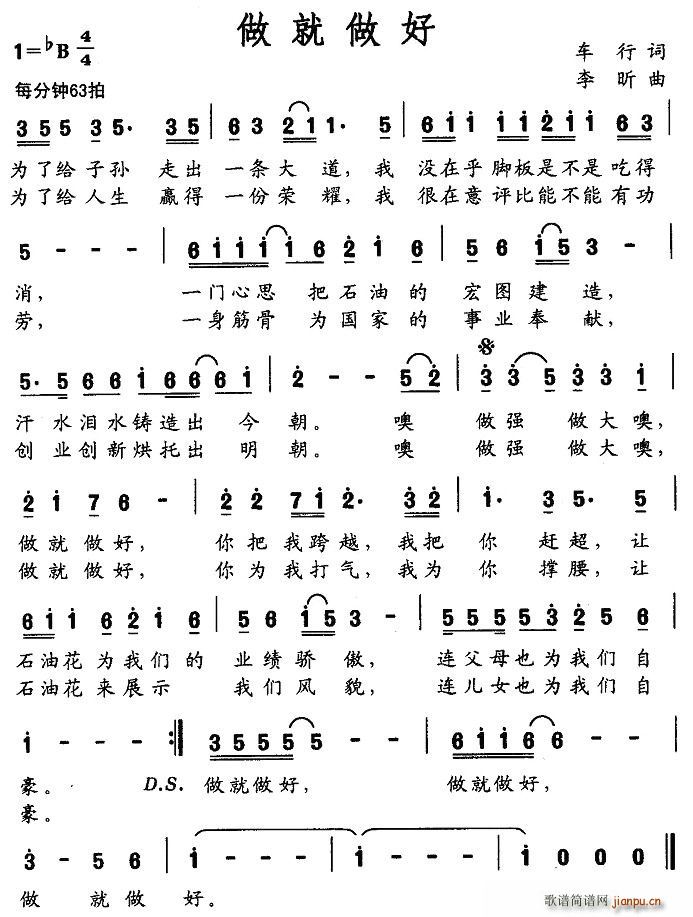 做就做好
1=♭B 4/4
车行词
李昕曲
每分钟63拍
3 5 5 3 5· 3 5 | 6 3 2 1 1 1· 5 | 6 1 1 1 1 2 1 1 6 3 |
为了给子孙 走出 一条大 道，我 没在乎脚板是不是吃得
为了给人生 赢得 一份荣 耀，我 很在意评比能不能有功
5 - - - | 6 1 1 1 1 1 6 2 1 6 | 5 6 1 5 3 - |
消， 一门心思 把石油的 宏图建造，
劳， 一身筋骨 为国家的 事业奉献，
5· 5 6 6 1 6 6 6 1 | 2 - - 5 2 | 3 3 5 3 3 1 |
汗 水泪水铸造出 今 朝。 噢 做强 做大噢，
创 业创新烘托出 明 朝。 噢 做强 做大噢，
2 1 7 6 - | 2 2 7 1 2· 3 2 | 1· 3 5· 5 |
做就做好， 你把我跨越，我把 你 赶超，让
做就做好， 你为我打气，我为 你 撑腰，让
6 1 1 6 2 1 6 | 5 6 1 5 3 - | 5 5 5 5 3 2 5 6 |
石油花为我们的 业绩骄傲， 连父母也为我们自
石油花来展示 我们风貌， 连儿女也为我们自
1 - - - :| 3 5 5 5 5 - - | 6 1 1 6 6 - - |
豪。 D.S. 做就做好， 做就做好，
豪。
3 - 5 6 | 1 - - - | 1 - - - | 1 0 0 0 ‖
做 就做 好。
歌谱简谱网
jianpu.cn